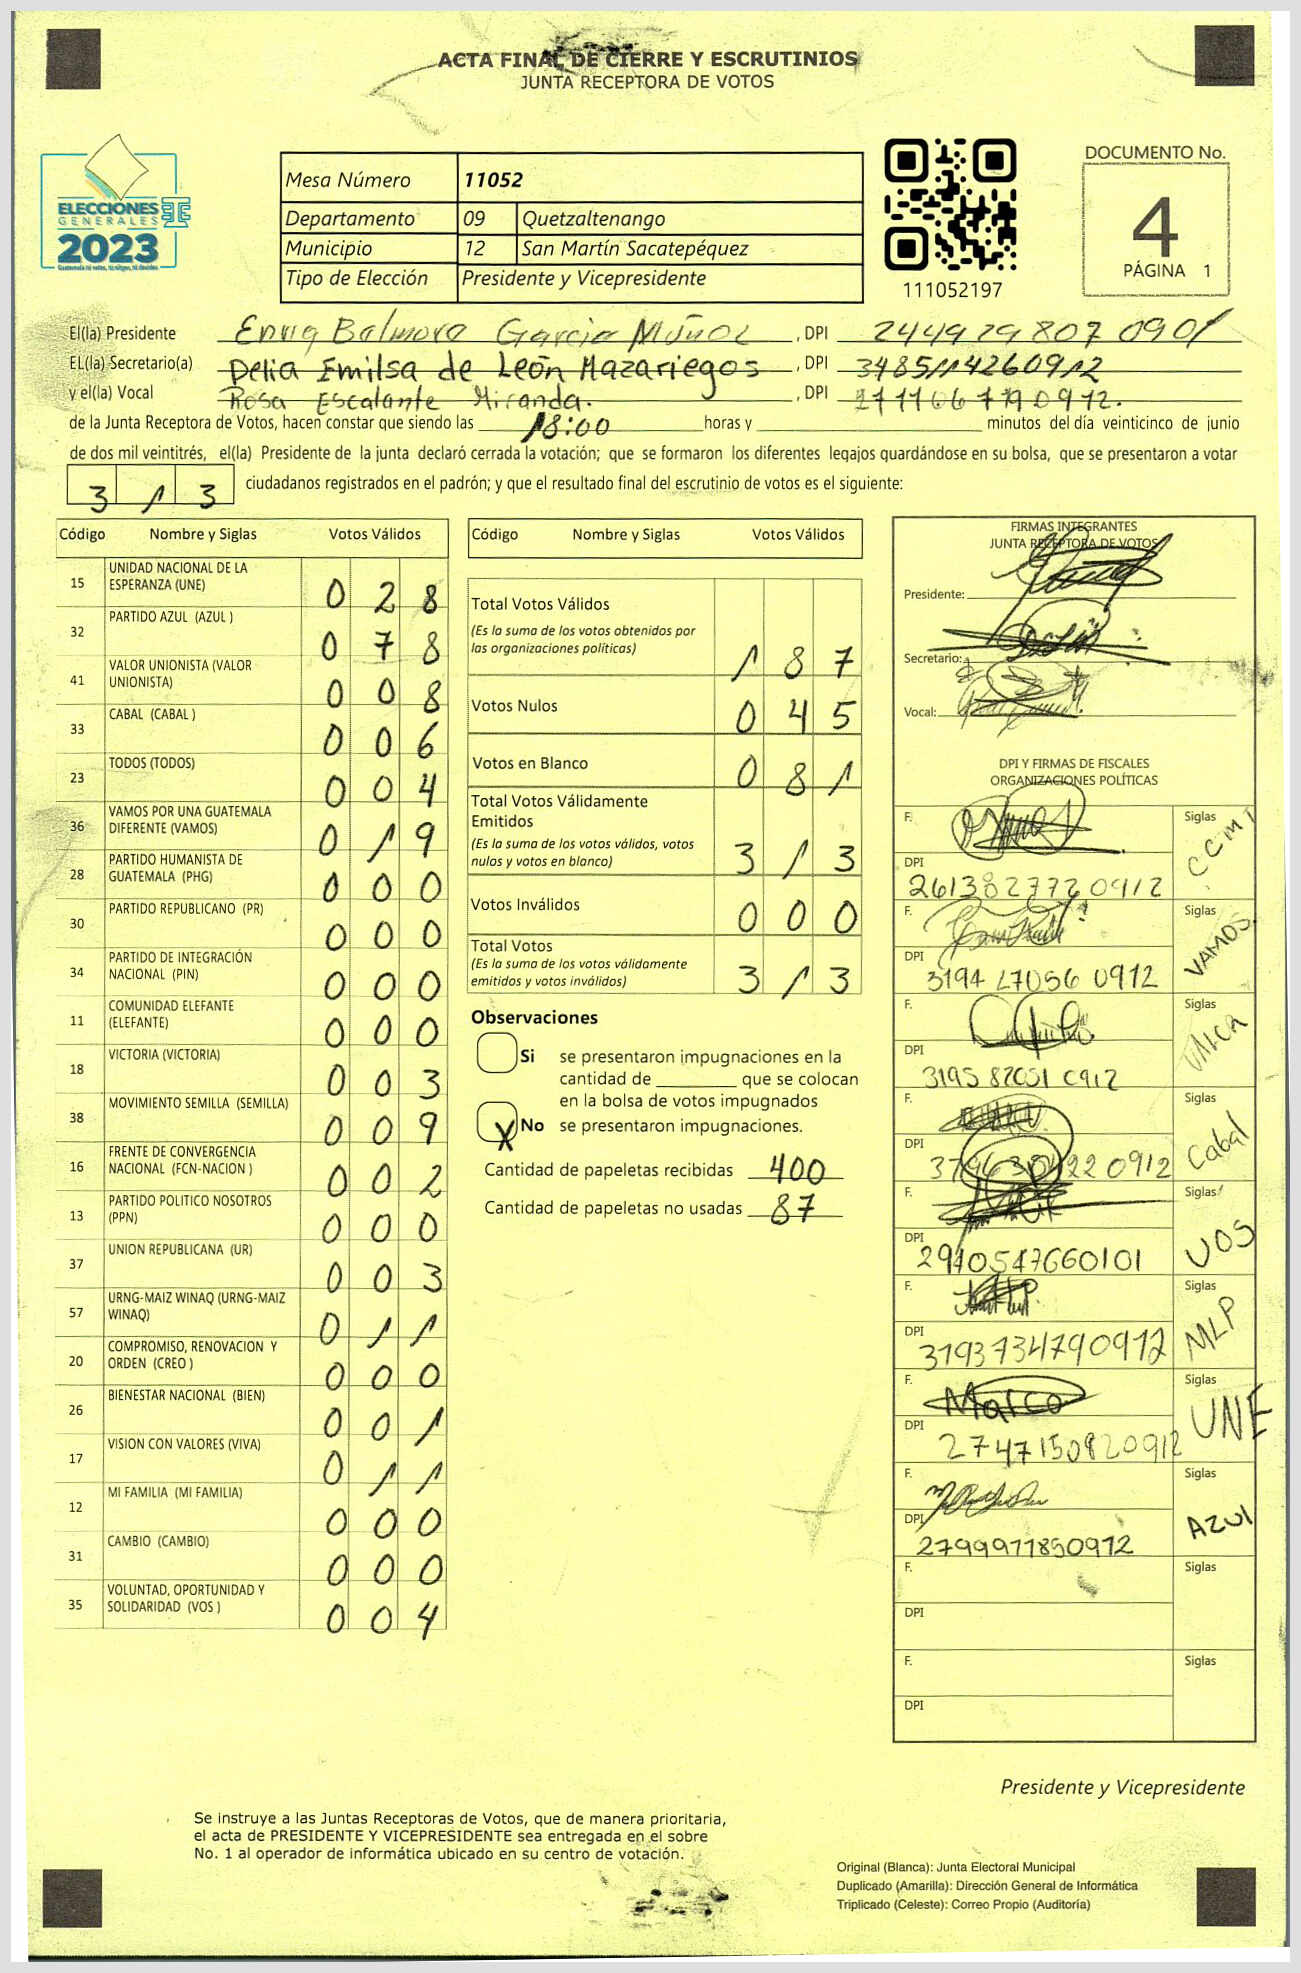 ACTA FINAL DE CIERRE Y ESCRUTINIOS
JUNTA RECEPTORA DE VOTOS
ELECCIONES
GENERALES
2023
Mesa Número 11052
Departamento 09 Quetzaltenango
Municipio 12 San Martín Sacatepéquez
Tipo de Elección Presidente y Vicepresidente
111052197
DOCUMENTO No.
4
PÁGINA 1
El(la) Presidente Balmora Garcia Muñoz , DPI 244929807 0901
EL(la) Secretario(a) Delia Emilsa de León Mazariegos , DPI 3485114260912
y el(la) Vocal Rosa Escalante Miranda. , DPI
de la Junta Receptora de Votos, hacen constar que siendo las 18:00 horas y minutos del día veinticinco de junio
de dos mil veintitrés, el(la) Presidente de la junta declaró cerrada la votación; que se formaron los diferentes legajos guardándose en su bolsa, que se presentaron a votar
3 1 3 ciudadanos registrados en el padrón; y que el resultado final del escrutinio de votos es el siguiente:
Código Nombre y Siglas Votos Válidos
15 UNIDAD NACIONAL DE LA
ESPERANZA (UNE) 0 2 8
32 PARTIDO AZUL (AZUL ) 0 7 8
41 VALOR UNIONISTA (VALOR
UNIONISTA) 0 0 8
33 CABAL (CABAL ) 0 0 6
23 TODOS (TODOS) 0 0 4
36 VAMOS POR UNA GUATEMALA
DIFERENTE (VAMOS) 0 1 9
28 PARTIDO HUMANISTA DE
GUATEMALA (PHG) 0 0 0
30 PARTIDO REPUBLICANO (PR) 0 0 0
34 PARTIDO DE INTEGRACIÓN
NACIONAL (PIN) 0 0 0
11 COMUNIDAD ELEFANTE
(ELEFANTE) 0 0 0
18 VICTORIA (VICTORIA) 0 0 3
38 MOVIMIENTO SEMILLA (SEMILLA) 0 0 9
16 FRENTE DE CONVERGENCIA
NACIONAL (FCN-NACION ) 0 0 2
13 PARTIDO POLITICO NOSOTROS
(PPN) 0 0 0
37 UNION REPUBLICANA (UR) 0 0 3
57 URNG-MAIZ WINAQ (URNG-MAIZ
WINAQ) 0 1 1
20 COMPROMISO, RENOVACION Y
ORDEN (CREO ) 0 0 0
26 BIENESTAR NACIONAL (BIEN) 0 0 1
17 VISION CON VALORES (VIVA) 0 1 1
12 MI FAMILIA (MI FAMILIA) 0 0 0
31 CAMBIO (CAMBIO) 0 0 0
35 VOLUNTAD, OPORTUNIDAD Y
SOLIDARIDAD (VOS ) 0 0 4
Código Nombre y Siglas Votos Válidos
Total Votos Válidos
(Es la suma de los votos obtenidos por
las organizaciones políticas) 1 8 7
Votos Nulos 0 4 5
Votos en Blanco 0 8 1
Total Votos Válidamente
Emitidos
(Es la suma de los votos válidos, votos
nulos y votos en blanco) 3 1 3
Votos Inválidos 0 0 0
Total Votos
(Es la suma de los votos válidamente
emitidos y votos inválidos) 3 1 3
Observaciones
Si se presentaron impugnaciones en la
cantidad de que se colocan
en la bolsa de votos impugnados
X No se presentaron impugnaciones.
Cantidad de papeletas recibidas 400
Cantidad de papeletas no usadas 87
FIRMAS INTEGRANTES
JUNTA RECEPTORA DE VOTOS
Presidente:
Secretario:
Vocal:
DPI Y FIRMAS DE FISCALES
ORGANIZACIONES POLÍTICAS
F. Siglas
DPI
261382772 0912
F. Siglas VAMOS
DPI
3194 27056 0912
F. Siglas
DPI
3195 82051 0912
F. Siglas Cabal
DPI
F. Siglas VOS
DPI
2940547660101
F. Siglas MLP
DPI
3193734790912
F. Marco Siglas UNE
DPI
2747150820912
F. Siglas AZUl
DPI
2799911850912
F. Siglas
DPI
F. Siglas
DPI
Presidente y Vicepresidente
Se instruye a las Juntas Receptoras de Votos, que de manera prioritaria,
el acta de PRESIDENTE Y VICEPRESIDENTE sea entregada en el sobre
No. 1 al operador de informática ubicado en su centro de votación.
Original (Blanca): Junta Electoral Municipal
Duplicado (Amarilla): Dirección General de Informática
Triplicado (Celeste): Correo Propio (Auditoría)